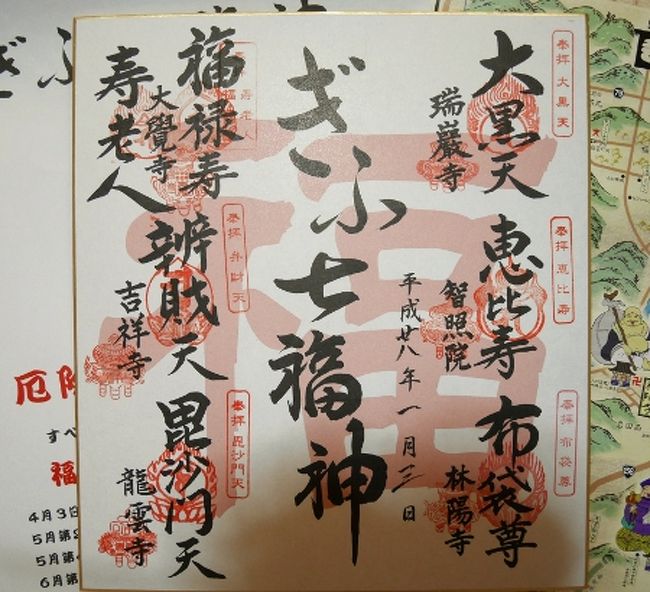 奉拝大黒天
大黒天
瑞巖寺
奉拝恵比寿
恵比寿
智照院
奉拝布袋尊
布袋尊
林陽寺
平成廿八年一月三日
ぎふ七福神
福
福禄寿
寿老人
大覺寺
奉拝弁財天
辨財天
吉祥寺
奉拝毘沙門天
毘沙門天
龍雲寺
ぎふ
厄除
すべ
福
4月3日
5月第
5月第
6月第